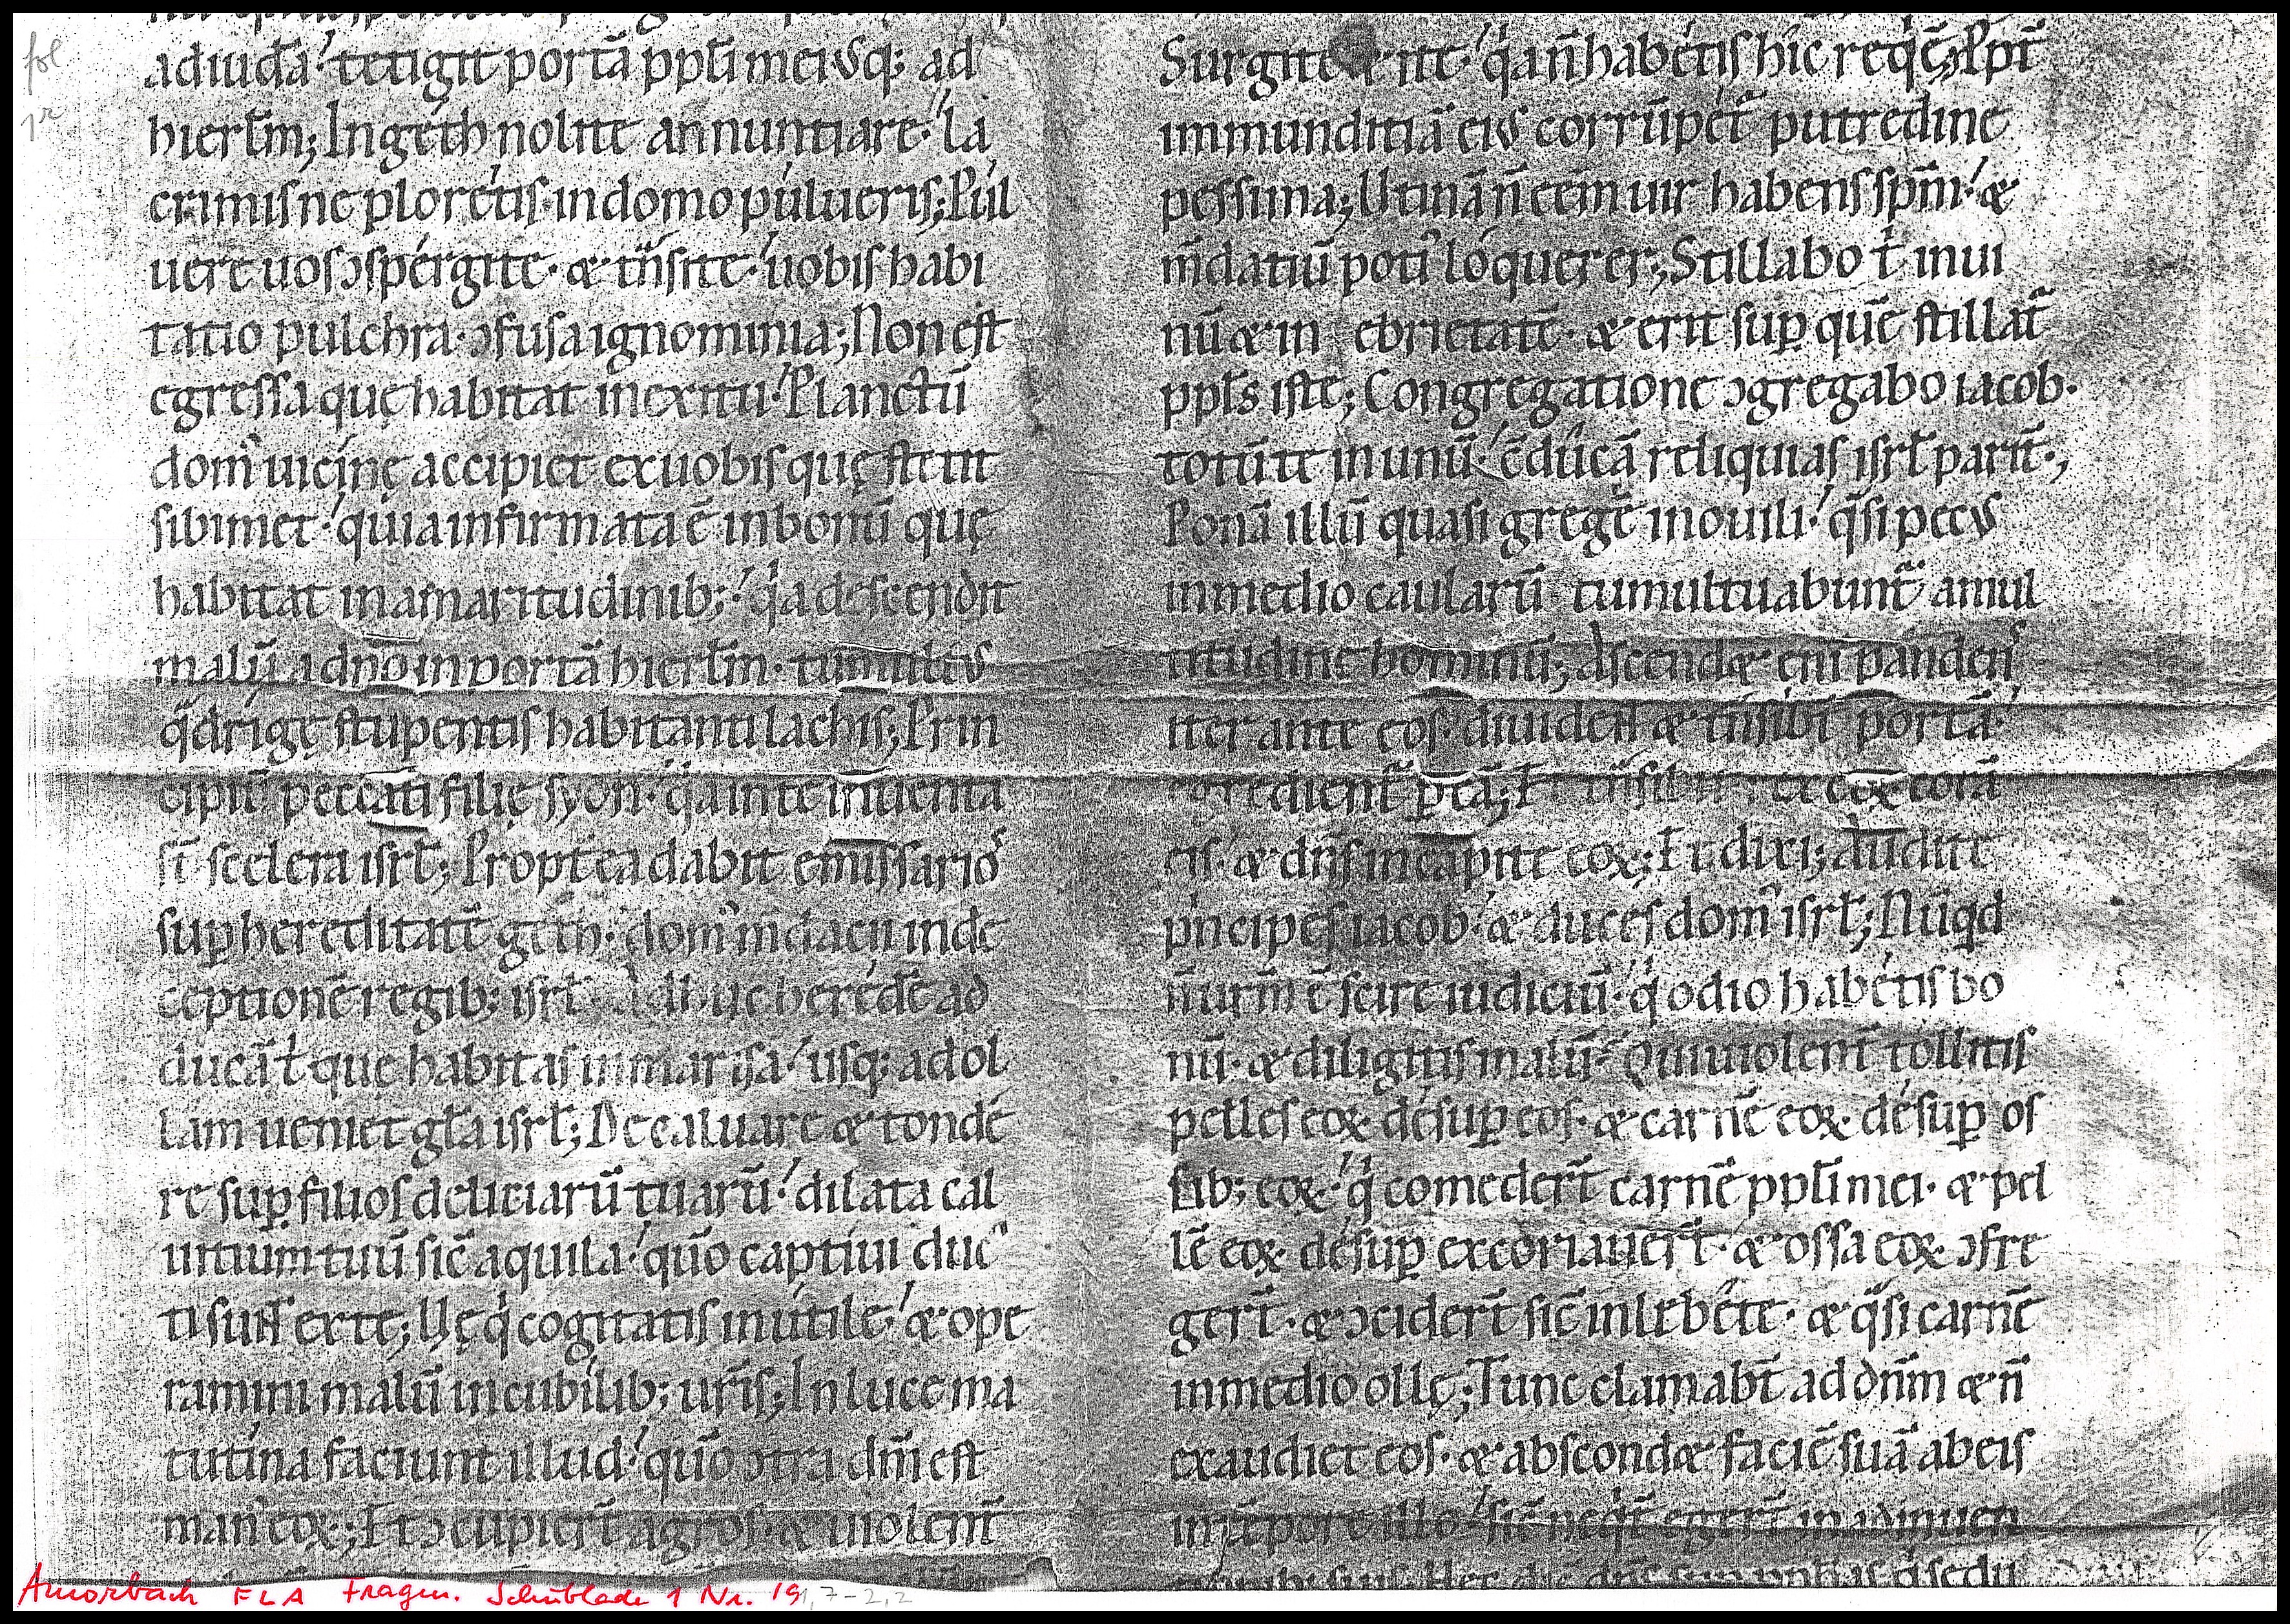 fol
1r
ad iudā tetigit portā ppłi mei usq; ad
hierłm; In geth nolite annuntiare· la
crimis ne ploretis· in domo pulueris; Pul
uere uos ɔspergite· & tn̄site· uobis habi
tatio pulchra· ɔfusa ignominia; Non est
egressa quę habitat in exitu· Planctū
dom' uicinę accipiet ex uobis quę stetit
sibimet· quia infirmata ē in bonū quę
habitat in amaritudinib;· q̇a descendit
malū a dn̄o in portā hierłm· tumultus
q̄drigę stupentis habitanti lachis; Prin
cipiū peccati filię syon· q̇a in te inuenta
st̄ scelera isrł; Propt̄ea dabit emissario'
suꝑ hereditatē geth· dom' m̄dacii in de
ceptionē regib; isrł· heredē ad
ducā t̄· quę habitas in marisa· usq; adol
lam ueniet gła isrł; Decaluare & tonde
re suꝑ filios deliciarū tuarū· dilata cal
uitium tuū sic̄ aquila· quō captiui duc
ti sunt ex te; Vę q̇ cogitatis inutile· & ope
ramini malū in cubilib; ur̄is; In luce ma
tutina faciunt illud· quō ɔtra dm̄ est
man' eoꝝ; Et ɔcupiert̄ agros· & uiolent̄
Surgite & ite· q̇a n̄ habetis hic req̇ē; Ppt̄
immunditiā eius corrūpet̄ putredine
pessima; Utinā n̄ eēm uir habens spm̄· &
m̄datiū poti' loquerer; Stillabo t̄ in ui
nū & in ebrietatē· & erit suꝑ quē stillat̄
ppłs iste; Congregatione ɔgregabo iacob·
totū te in unū· ɔ̄ducā reliquias isrł parit̄·,
Ponā illū quasi gregē in ouili· q̄si pecus
in medio caularū tumultuabunt̄ a mul
titudine hominū; Ascend& eni pandens
iter ante eos· diuident & tn̄sibt̄ portā·
egredient̄ ꝑ eā; Et tn̄sibit rex eoꝝ corā
eis· & dn̄s in capite eoꝝ; Et dixi; audite
pn̄cipes iacob· & duces dom' isrł; Nūqd
n̄ ur̄m ē scire iudiciū· q̇ odio habetis bo
nū· & diligitis malū· Qui uiolent̄ tollitis
pelles eoꝝ desuꝑ eos· & carnē eoꝝ desuꝑ os
sib; eoꝝ· q̇ comedert̄ carnē ppłi mei· & pel
lē eoꝝ desuꝑ excoriauert̄· & ossa eoꝝ ɔfre
gert̄· & ɔcidert̄ sic̄ in lebete· & q̄si carnē
in medio ollę; Tunc clamabt̄ ad dn̄m & n̄
exaudiet eos· & abscond& faciē suā ab eis
in tēpore illo· sic̄ neq̇t̄ egert̄ in adinuen
Amorbach FLA Fragm. Schublade 1 Nr. 19 1,7-2,2